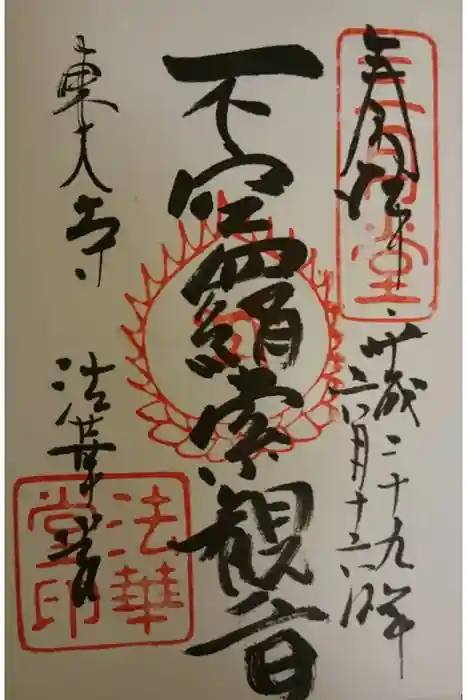 奉拝
三月堂
平成二十九年
六月十六日
不空羂索観音
東大寺
法華堂
法華堂印